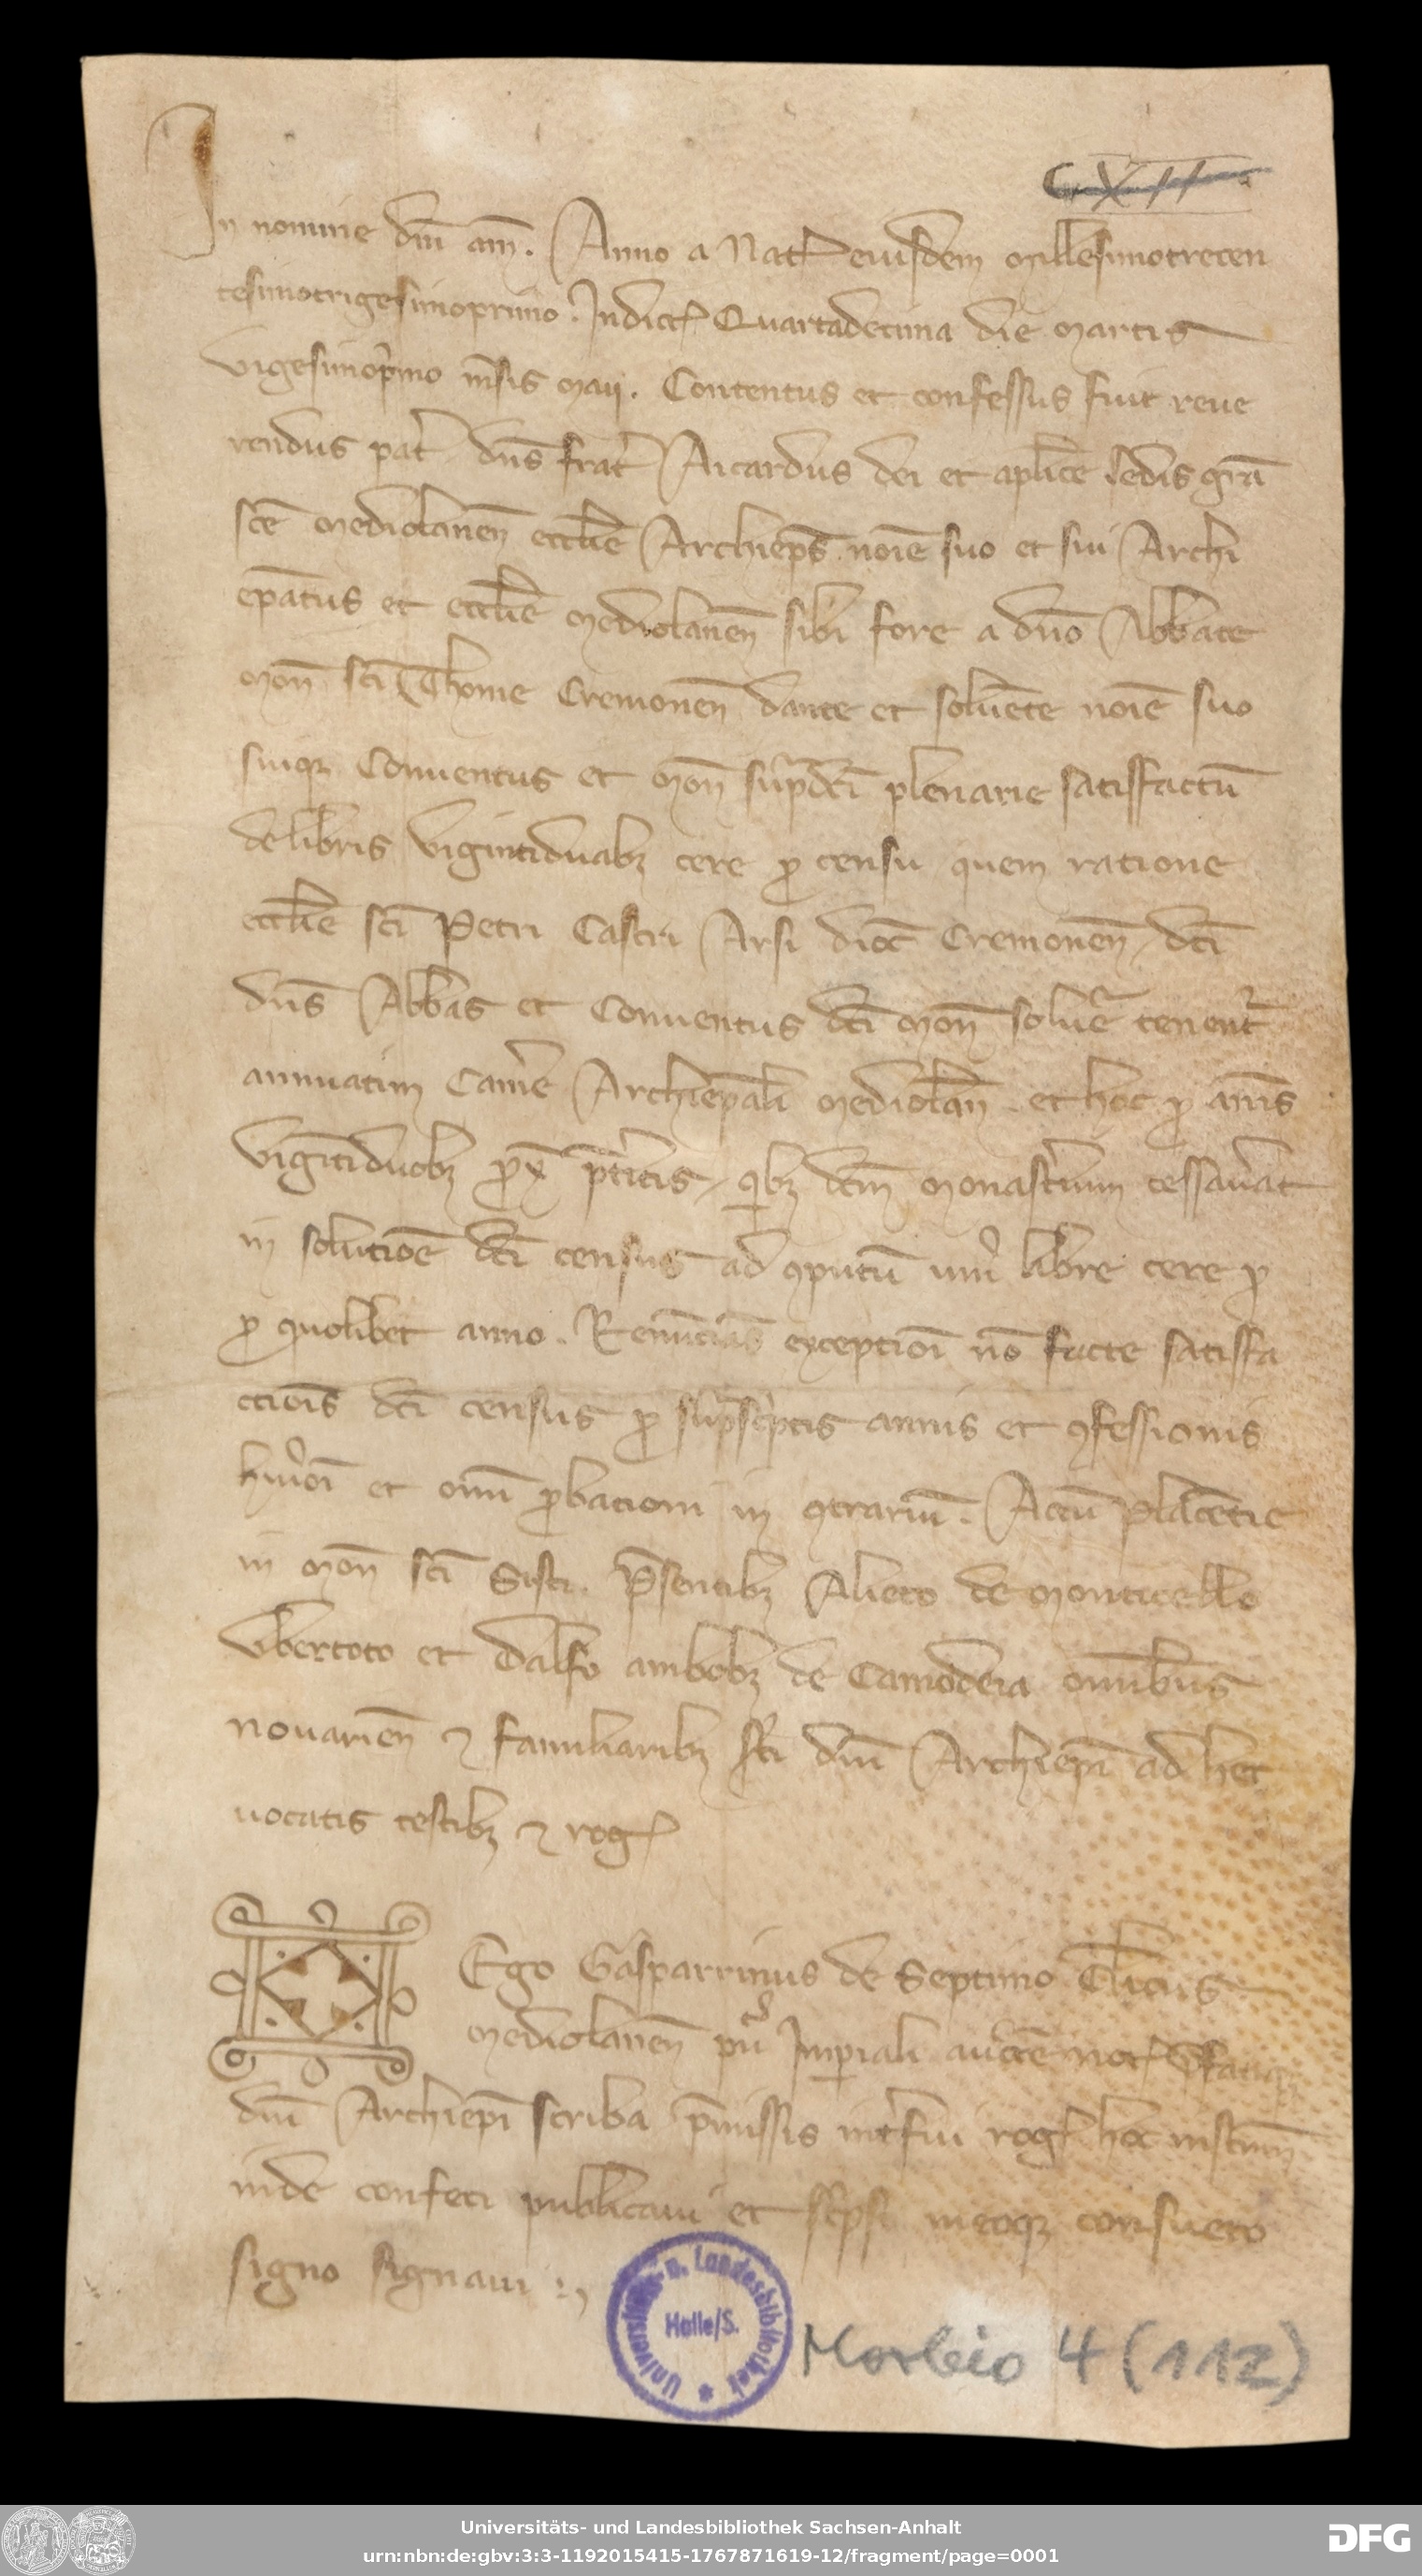 CXII
In nomine dnī am̄. Anno a Nat̄ eiusdem millesimotrecen
tesimotrigesimoprimo. Indict̄ Quartadecima die martis
vigesimopͥmo mn̄sis maij. Contentus et confessus fuit reue
rendus pat̄ dn̄s frat̄ Aicardus dei et aplīce sedis grā
scē mediolanen̄ eccl̄ie Archiep̄s noīe suo et sui Archi
ep̄atus et eccl̄ie mediolanen̄ sibi fore a dn̄o Abbate
mon̄ scī Thome Cremonen̄ dante et soluēte noīe suo
suiqꝫ Conuentus et mon̄ sup̄dc̄i plenarie satisfactū
de libris vigintiduabꝫ cere ꝓ censu quem ratione
eccl̄ie scī Petri Castri Arsi dioc̄ Cremonen̄ dc̄i
dn̄s Abbas et Conuentus dc̄i mon̄ soluē tenent᷑
annuatim Cam̄e Archiep̄ali mediolan̄ et hoc ꝓ ann̄is
vigītiduobꝫ ꝓx̄ p̄t̄itis, qͥbꝫ dc̄m monast̄ium cessau̓at
in solutiōe dc̄i census ad ꝯputū uni᷒ libre cere ꝓ
ꝓ quolibet anno. Renūcians exceptiōi nō facte satisfa
ctiōis dc̄i census ꝓ sup̄scͥptis annis et ꝯfessionis
hui᷒mōi et om̄i ꝓbationi in ꝯtrariū. Actū placētie
in mon̄ scī Sisti. p̄sentibꝫ Alieto de monticello
Vbertoto et Dalfo ambobꝫ de Camodeia omībus
nouarien̄ ⁊ familiaribꝫ sc̄i dn̄i Archiep̄i ad hec
uocatis testibꝫ ⁊ roḡ
Ego Gasparrinus de Septimo Cl̄icus
mediolanen̄ pu᷒ Imꝑiali auctē not̄ p̄fatiqꝫ
dn̄i Archiep̄i scriba p̄missis int̄fui roḡ hoc instm̄
inde confeci publicaui et scͥpsi meoqꝫ consueto
signo signaui :~
Universitäts- u. Landesbibliothek
Halle/S.
Morbio 4 (112)
Universitäts- und Landesbibliothek Sachsen-Anhalt
urn:nbn:de:gbv:3:3-1192015415-1767871619-12/fragment/page=0001
DFG